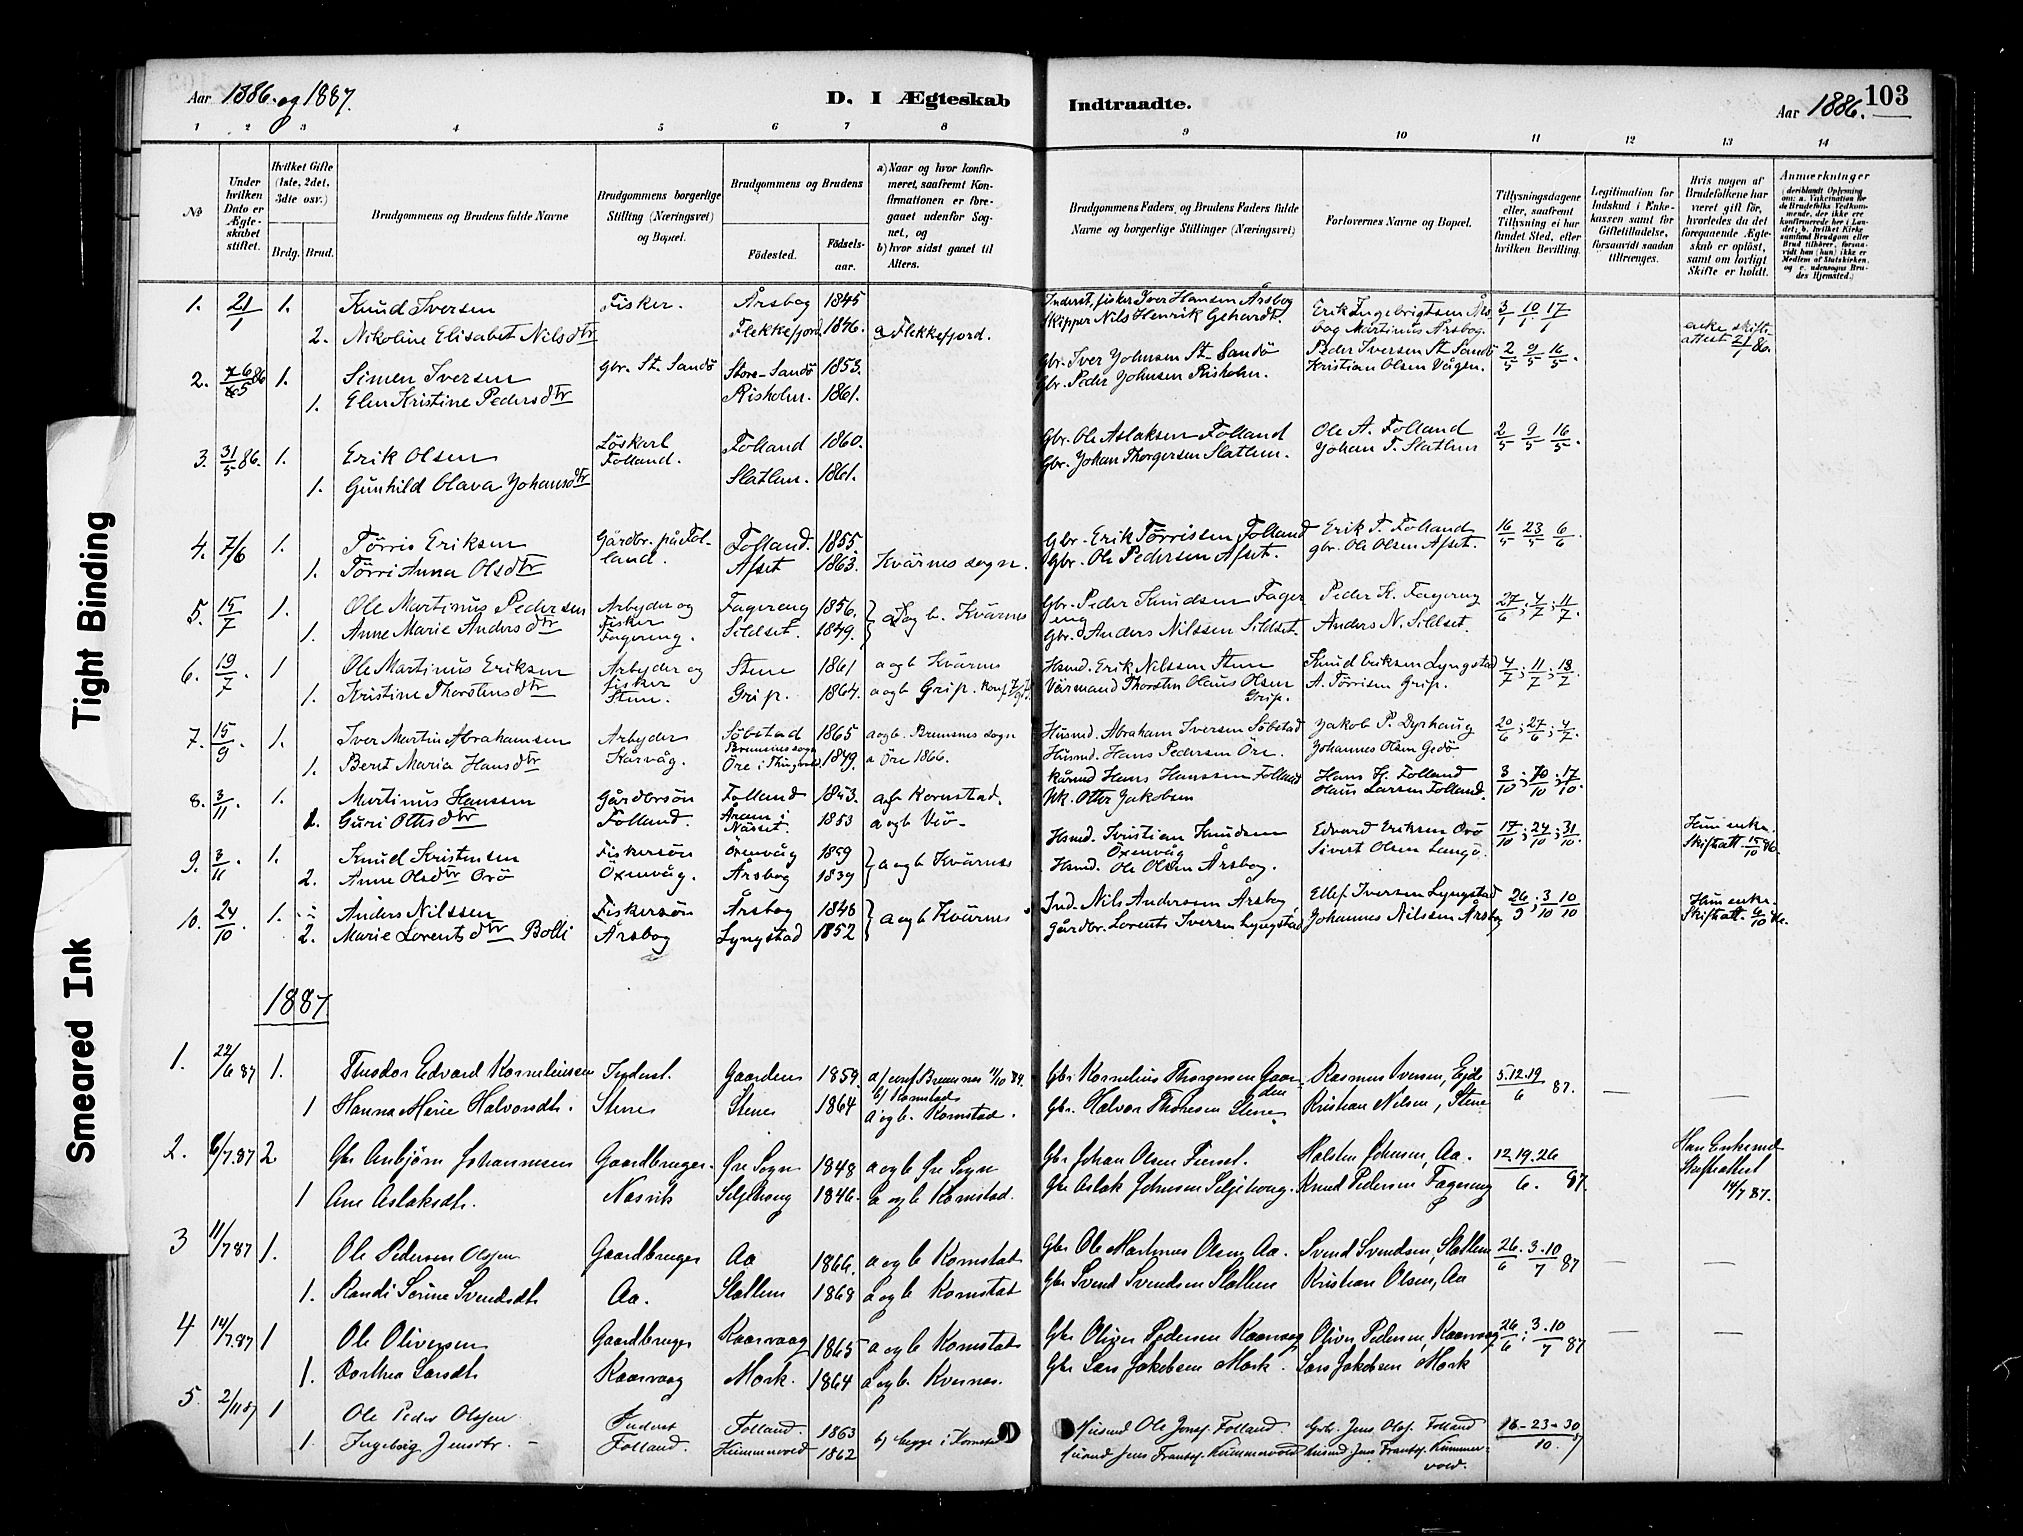 Aar 1886. og 1887. D. I Ægteskab Indtraadte. Aar 1886. 103
1 2 3 4 5 6 7 8 9 10 11 12 13 14
№
Under hvilken Dato er Ægteskabet stiftet.
Hvilket Gifte (1ste, 2det, 3die osv.)
Brdg. Brud.
Brudgommens og Brudens fulde Navne
Brudgommens borgerlige Stilling (Næringsvei) og Bopæl.
Brudgommens og Brudens
Födested. Födsels-aar.
a) Naar og hvor konfirmeret, saafremt Konfirmationen er foregaaet udenfor Sognet, og
b) hvor sidst gaaet til Alters.
Brudgommens Faders og Brudens Faders fulde Navne og borgerlige Stillinger (Næringsvei)
Forlovernes Navne og Bopæl.
Tillysningsdagene eller, saafremt Tillysning ei har fundet Sted, efter hvilken Bevilling.
Legitimation for Indskud i Enkekassen samt for Giftetilladelse, forsaavidt saadan tiltrænges.
Hvis nogen af Brudefolkene har været gift för, hvorledes da det foregaaende Ægteskab er oplöst, samt om lovligt Skifte er holdt.
Anmærkninger
1. 21/1 1. Knud Iversen Fisker. Årsbog 1845 Inderst, fisker Iver Hansen Årsbog Erik Ingebrigtsen Års- 3/1 10/1 17/1
2. Nikoline Elisabet Nilsdtr Flekkefjord 1846. a Flekkefjord. Skipper Nils Henrik Gehardt. bog Martinus Årsbog. enke skifteattest 21/1 86.
2. 1. Simen Iversen Gbr. St. Sandö Store-Sandö 1853. Gbr. Iver Johnsen St-Sandö Peder Iversen St Sandö 2/5 9/5 16/5.
1. Elen Kristine Pedersdtr Risholm. 1861. Gbr. Peder Johnsen Risholm. Kristian Olsen Vågen.
3. 31/5 86. 1. Erik Olsen Löskarl Folland. Folland 1860. Gbr. Ole Aslaksen Folland Ole A. Folland 2/5 9/5 16/5.
1. Gunhild Olava Johansdtr Slatlem. 1861. Gbr. Johan Thorgersen Slatlem. Johan T. Slatlem
4. 7/6 1. Tørris Eriksen Gårdbr. på Fol- Folland. 1855. Gbr. Erik Tørrissen Folland Erik T. Folland 16/5 23/5 6/6.
1. Tørri Anna Olsdtr land. Afset 1863. Kvärnes sogn. Gbr. Ole Pedersen Afset. gbr. Ole Olsen Afset.
5. 15/7 1. Ole Martinus Pedersen Arbyder og Fagereng 1856. a og b. Kvärnes Gbr. Peder Knudsen Fagereng Peder K. Fagereng 27/6; 4/7; 11/7.
1. Anne Marie Andersdtr Fisker Fagereng. Sildset. 1849. Gbr. Anders Nilssen Sildset. Anders N. Sildset.
6. 19/7. 1 Ole Martinus Eriksen Arbyder og Stene 1861 a og b Kvärnes Husmd. Erik Nilssen Stene Knud Eriksen Lyngstad 4/7; 11/7; 18/7.
1. Kristine Thorstensdtr Fisker Stene. Grip. 1864. a og b Grip. Värmand Thorsten Olaus Olsen Grip. A. Tørrisen Grip.
7. 15/9. 1. Iver Martin Abrahamsen Arbyder Söbstad Bremsnes sogn 1865 a og b. Bremsnes sogn Husmd. Abraham Iversen Söbstad Jakob P. Dyrhaug 20/6; 27/6; 4/7.
1. Berit Maria Hansdtr Kårvåg. Öre i Thingvold. 1849. a Öre 1866. Husmd. Hans Pedersen Öre. Johannes Olsen Gedö
8. 3/11 1. Martinus Hanssen Gårdbrsön Folland 1843. a og b Kornstad. Kårmd Hans Hanssen Folland Hans H. Folland 3/10; 10/10; 17/10.
Guri Ottisdtr Folland. Äram i Nässet. 1853 a og b Veö. Otter Jakobsen Olaus Larsen Folland.
9. 3/11. 1. Knud Kristensen Fiskersön Öxenvåg 1859 a og b Kvärnes Husmd. Kristian Knudsen Öxenvåg Edvard Eriksen Orö 17/10; 24/10; 31/10
2. Anne Olsdtr Orö Öxenvåg. Årsbog 1839 Husmd. Ole Olsen Årsbog. Sivert Olsen Langö. Hun enke. Skifteatt. 15/10 86.
10. 24/10. 1. Anders Nilssen Fiskersön Årsbog 1848 a og b Kvärnes Ind. Nils Andersen Årsbog, Ellef Iversen Lyngstad 26/9; 3/10 10/10
2. Marie Lorentsdtr Bolli Årsbog Lyngstad 1852 Gårdbr. Lorents Iversen Lyngstad Johannes Nilssen Årsbog Hun enke. Skifteatt.
1887
1. 22/6 87 1. Theodor Edvard Kornelius­sen Inderst. Gaarden 1859. a/ conf Bremsnes 11/10 84. b/ Kornstad Gbr Kornelius Thorgersen Gaarden Rasmus Iversen, Eide 5.12.19/6 87. — —
1 Hanna Marie Halvorsdt. Stene Stene 1864 a og b. Kornstad. Gbr. Halvor Thoresen Stene Kristian Nilsen, Stene
2. 6/7.87 2 Gbr Anbjörn Johannesen Gaardbruger. Öre Sogn 1848 a og b Öre Sogn Gbr Johan Olsen Halsten Johnsen, Aa. 12.19.26/6. 87. Han Enkemd Skifteattest 14/7 87.
1 Ane Aslaksdt. Næsvik Seljehoug 1846. a og b Kornstad. Gbr Aslak Johnsen Seljehoug. Knud Pedersen Fagereng
3 11/7 87 1. Ole Pedersen Olsen Gaardbruger Aa 1866. a og b Kornstad Gbr Ole Martinus Olsen Aa. Svend Svendsen, Slatlem 26/6. 3.10/7 87 — —
1. Randi Serine Svendsdt. Aa. Slatlem 1868 a og b Kornstad Gbr Svend Svendsen Slatlem Kristian Olsen, Aa
4 14/7.87 1 Ole Oliversen Gaardbruger Kaarvaag 1865 a og b Kornstad Gbr Oliver Pedersen Kaarvaag Oliver Pedersen, Kaarvaag 26/6; 3.10/7 87 — —
1. Dorthea Larsdt. Kaarvaag Mork. 1864 a og b. Kvernes. Gbr Lars Jakobsen Mork. Lars Jakobsen Mork
5. 2/11 87 1 Ole Peder Olssen Inderst Folland. 1863 b) begge i Kornstad Husmd Ole Jonsf. Folland. Gbr. Jens Olsf. Folland 16-23-30/10. 87
1. Ingeborg Jensdtr. Folland. Kummervold 1862 Husmd Jens Frantsf. Kummervold husmd. Jens Frantsf. Kummervold.
Tight Binding
Smeared Ink